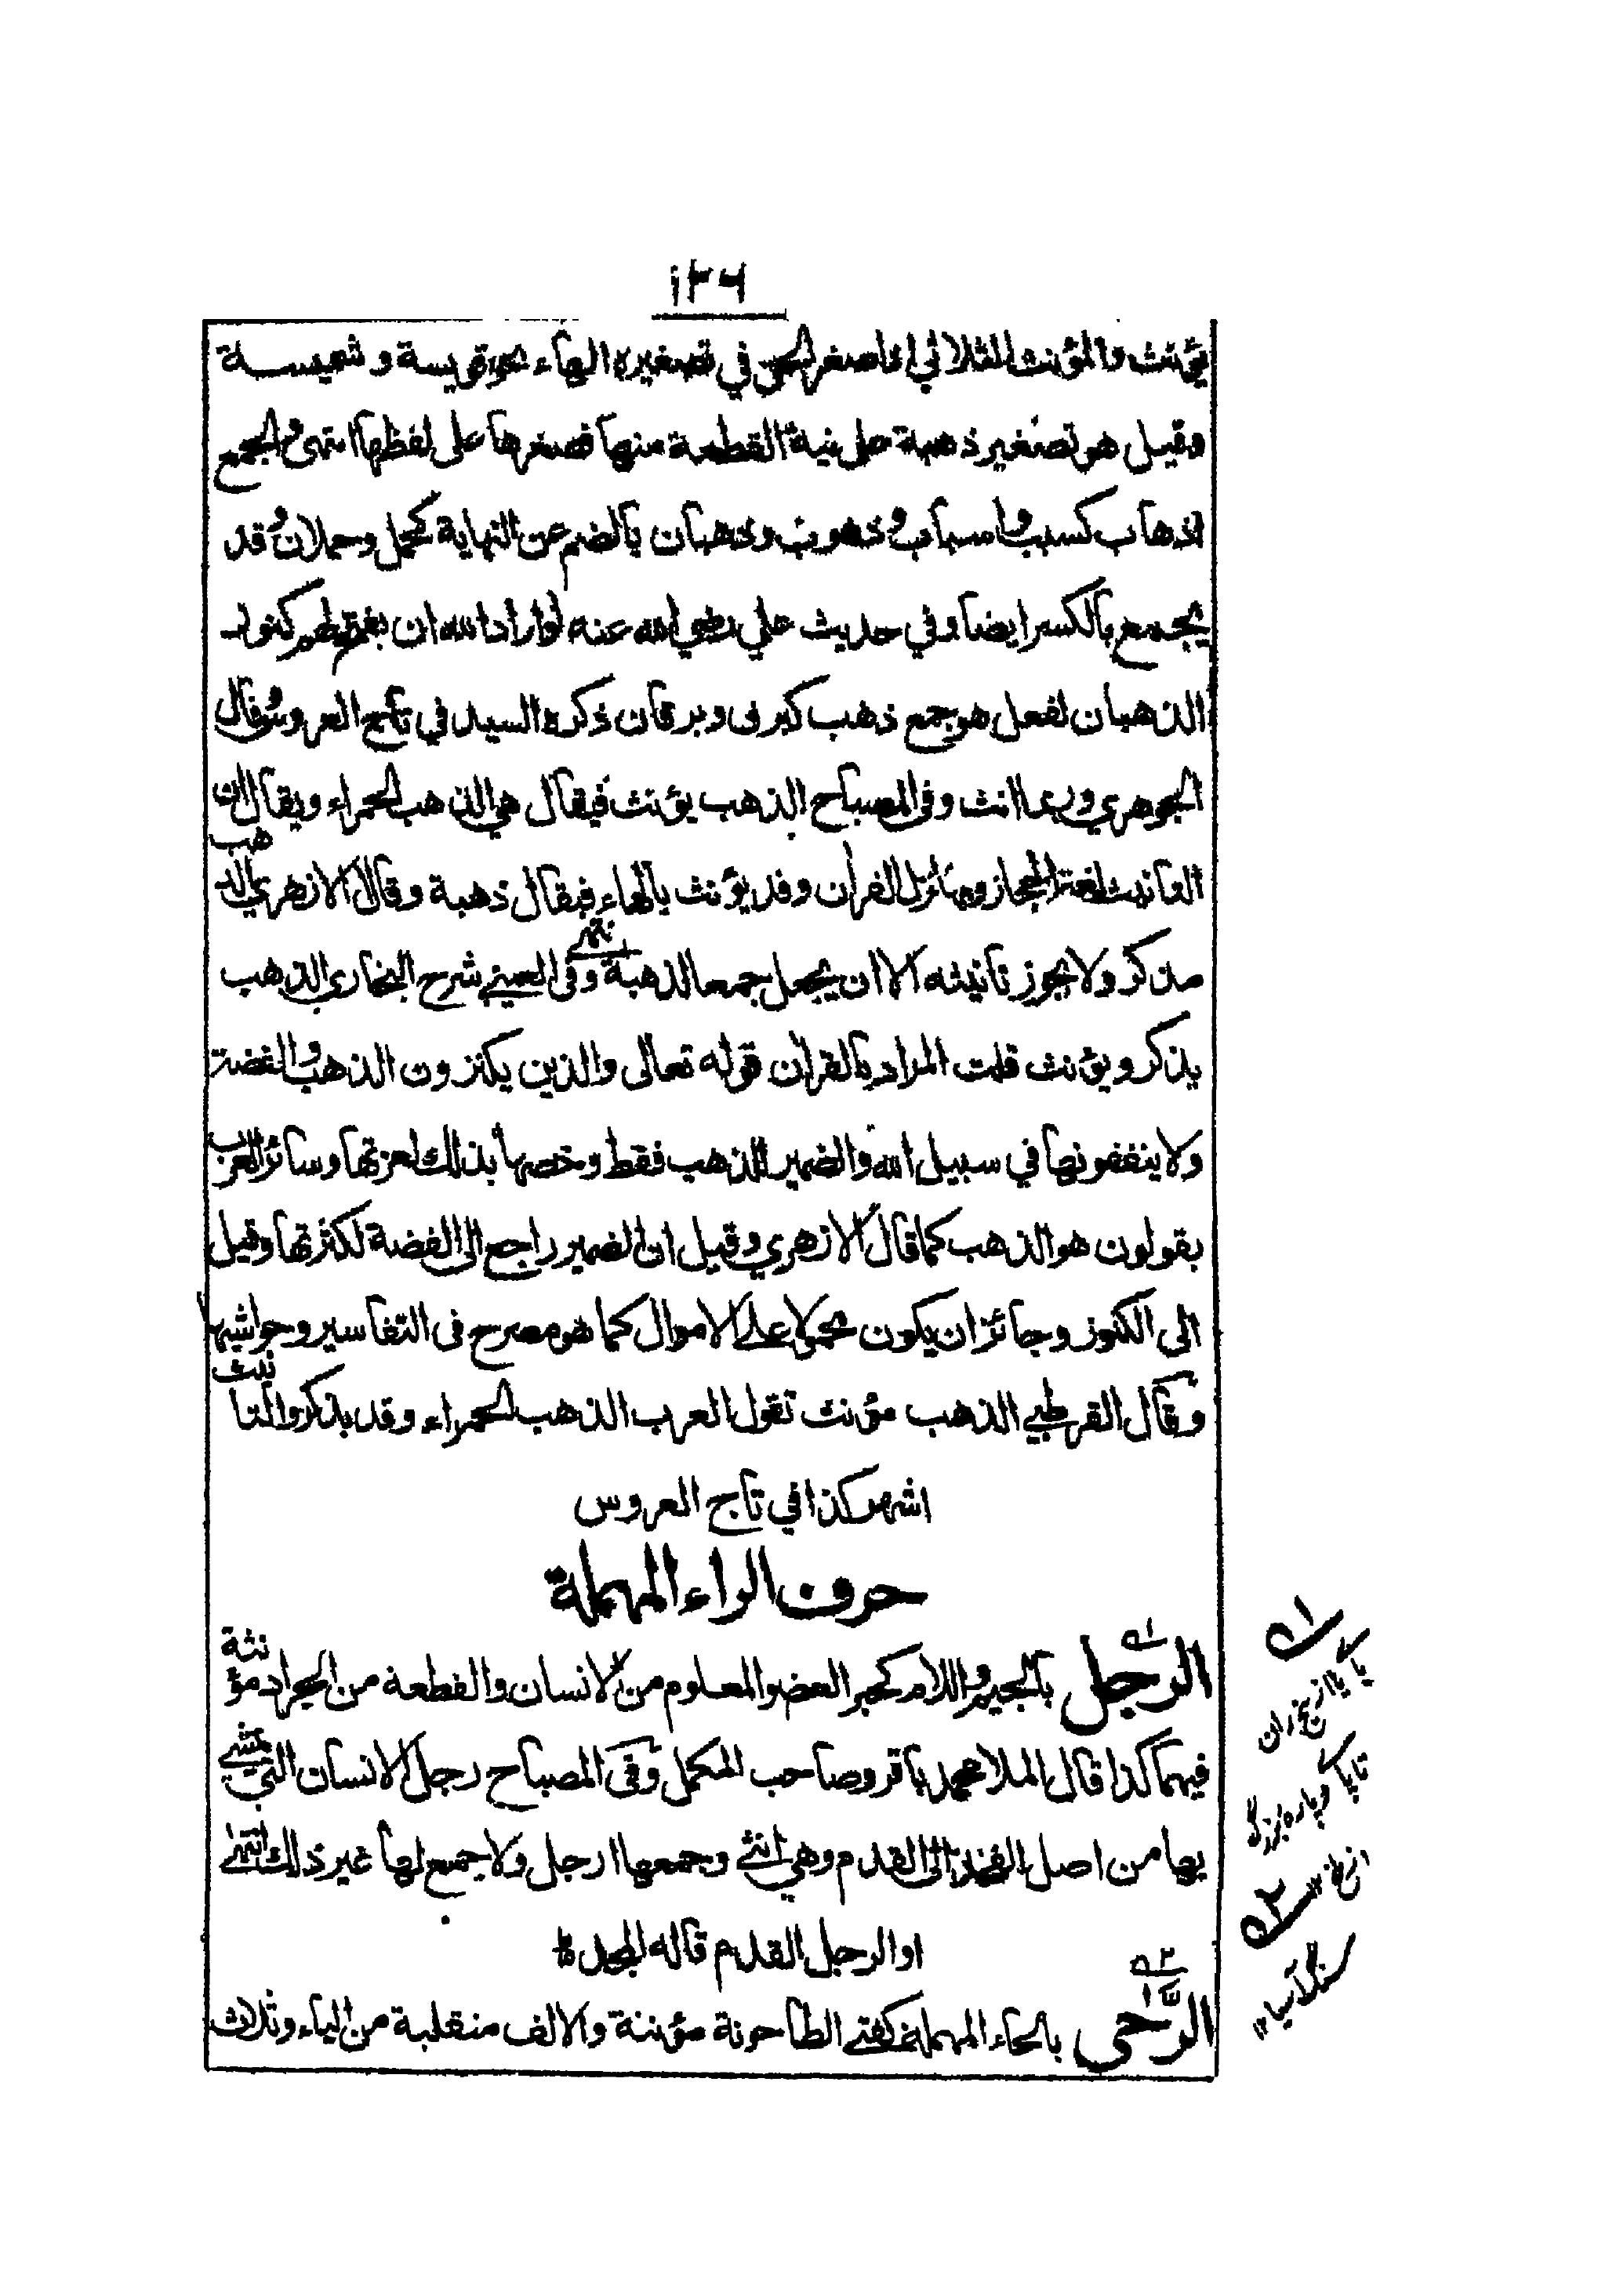 ١٣٦
يؤنث والمؤنث الثلاثي اذا صغر الحق في تصغيره الهاء نحو قويسة وشميسة
وقيل هو تصغير ذهبة على نية القطعة منها فصغرها على لفظها انتهى والجمع
اذهاب كسبب واسباب وذهوب وذهبان بالضم عن النهاية كحمل وحملان وقد
يجمع بالكسر ايضا وفي حديث علي رضي الله عنه لو اراد الله ان يفتح لهم كنوز
الذهبان لفعل هو جمع ذهب كبرق وبرقان ذكره السيد في تاج العروس وقال
الجوهري وربما انث وفى المصباح الذهب يؤنث فيقال هي الذهب الحمراء ويقال ان
التانيث لغة الحجاز وبها نزل القرآن وقد يؤنث بالهاء فيقال ذهبة وقال الازهري الذهب
مذكر ولا يجوز تانيثه الا ان يجعل جمعا لذهبة انتهى وفى العيني شرح البخاري الذهب
يذكر ويؤنث قلت المراد بالقرآن قوله تعالى والذين يكنزون الذهب والفضة
ولا ينفقونها في سبيل الله والضمير للذهب فقط وخصها بذلك لعزتها وسائر العرب
يقولون هو الذهب كما قال الازهري وقيل ان الضمير راجع الى الفضة لكثرتها وقيل
الى الكنوز وجائز ان يكون محمولا على الاموال كما هو مصرح فى التفاسير وحواشيها
وقال القرطبي الذهب مؤنث تقول العرب الذهب الحمراء وقد يذكر والتانيث
اشهر كذا في تاج العروس
حرف الراء المهملة
الرجل بالجيم واللام كحبر العضو المعلوم من الانسان والقطعة من الجراد مؤنثة
فيهما كذا قال الملا محمد باقر وصاحب المكمل وفى المصباح رجل الانسان التي يمشي
بها من اصل الفخذ الى القدم وهي انثى وجمعها ارجل ولا جمع لها غير ذلك انتهى
او الرجل القدم قاله المجد
الرحى بالحاء المهملة كفتى الطاحونة مؤنثة والالف منقلبة من الياء وثلاث
٥١
پا يا از بيخ ران
تا پا و پاره بزرگ
از ملخ
٥٢
سنگ آسيا ١٢